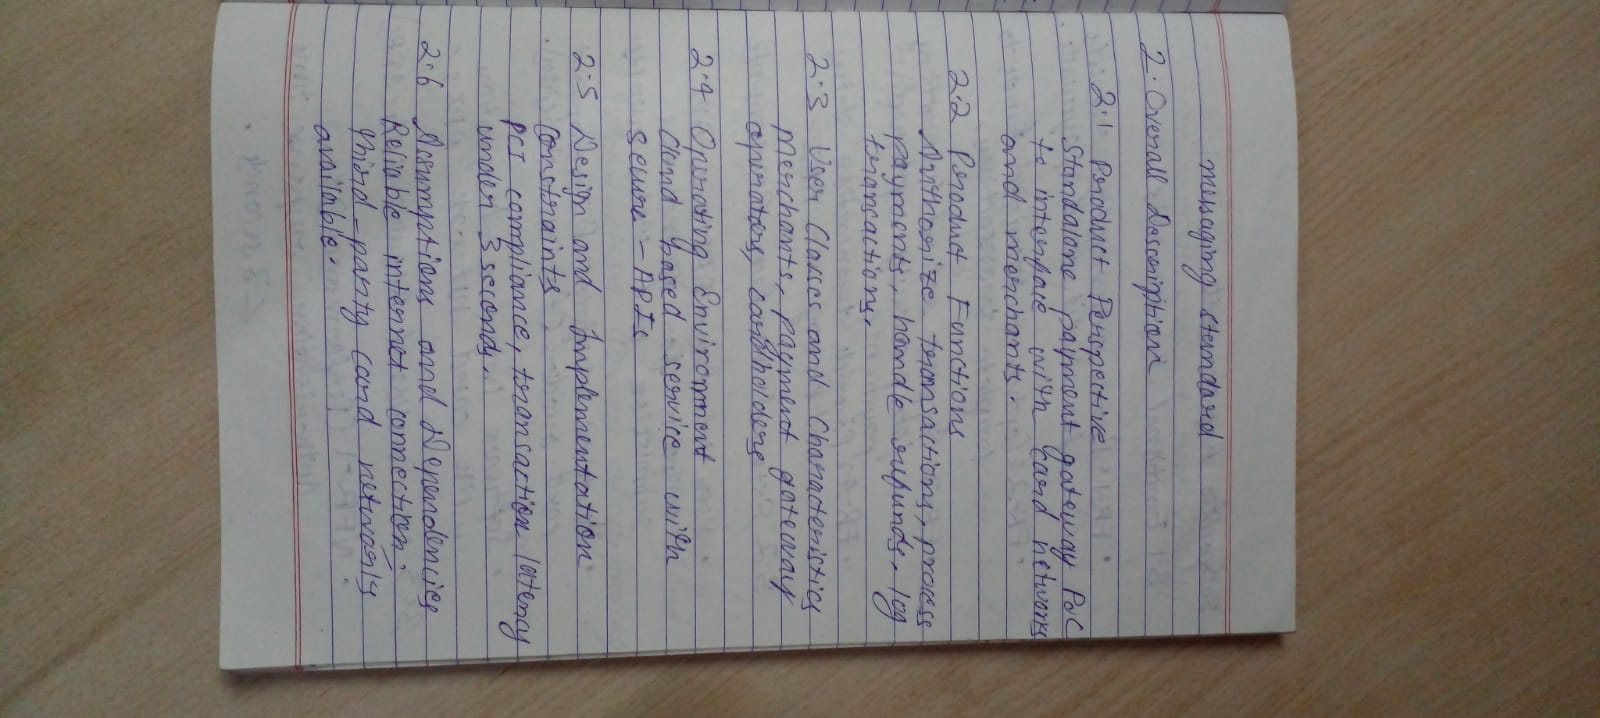 messaging standard
2. Overall Description
2.1 Product Perspective
Standalone payment gateway PoC
to interface with card networks
and merchants.
2.2 Product Functions
Authorize transactions, process
payments, handle refunds, log
transactions.
2.3 User Classes and Characteristics
Merchants, payment gateway
operators, cardholders
2.4 Operating Enviroment
Cloud based service with
secure - APIs
2.5 Design and Implementation
Constraints
PCI compliance, transaction latency
under 3 seconds.
2.6 Assumptions and Dependencies
Reliable internet connection.
Third-party card networks
available.